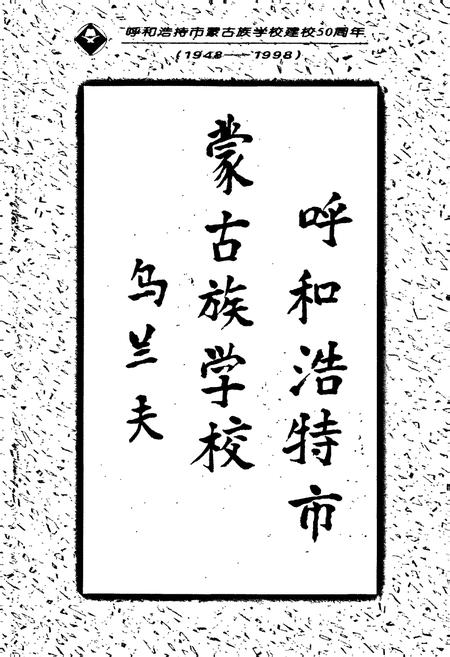 呼和浩特市蒙古族学校建校50周年
(1948——1998)
呼和浩特市
蒙古族学校
乌兰夫